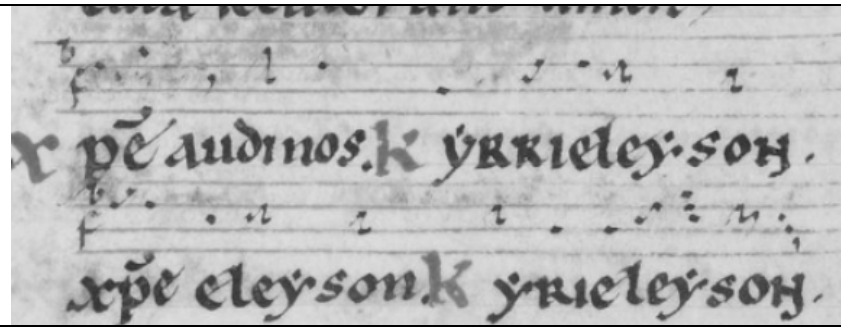 xp̄e audinos. kyrrieleyson.
xp̄e eleyson. kyrieleyson.